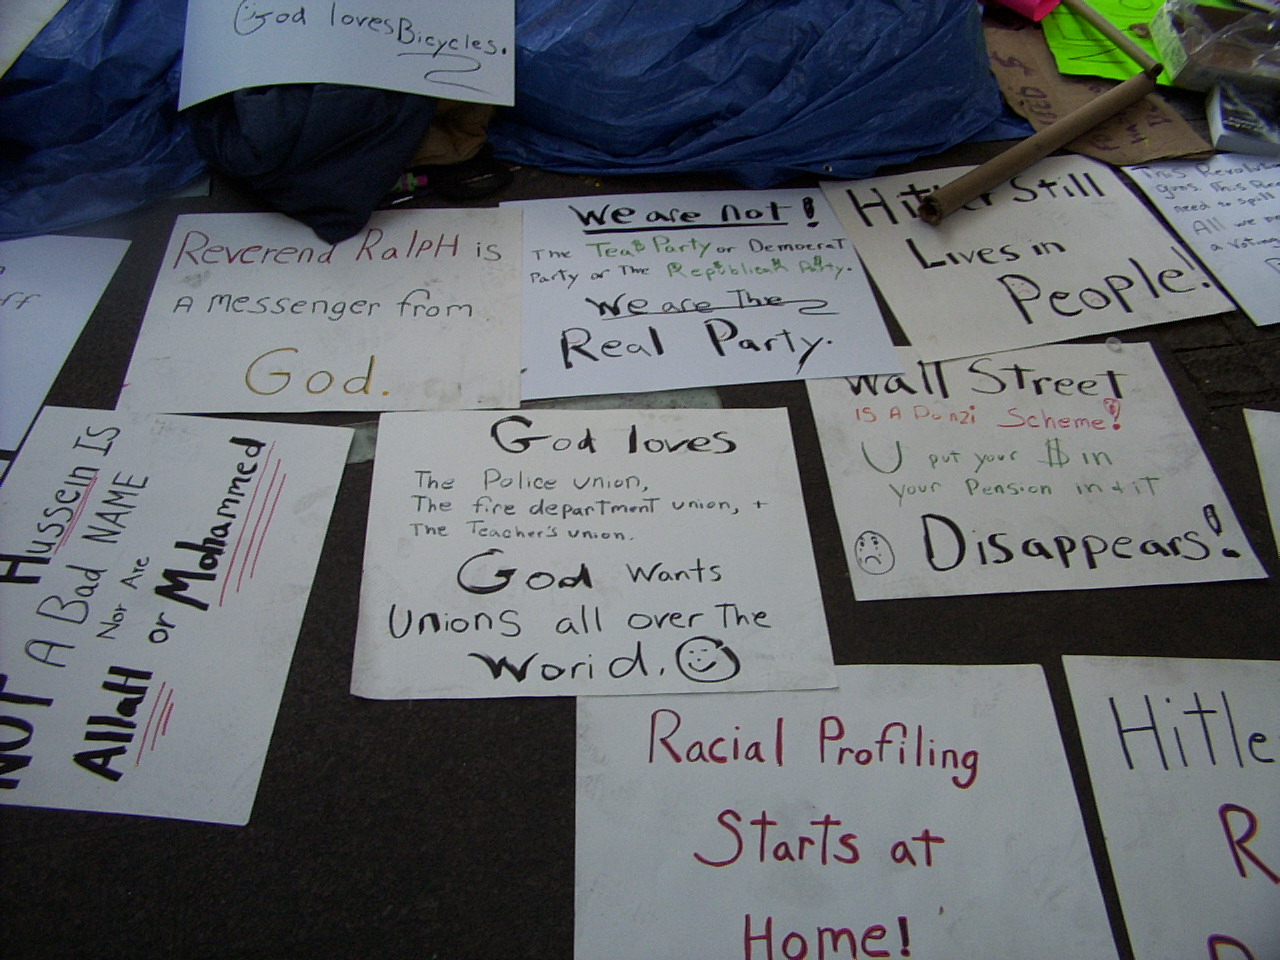 God loves Bicycles.
Reverend Ralph is
A messenger from
God.
We are not!
The Tea Party or Democrat
Party or The Republican Party.
We are The
Real Party.
Hitler Still
Lives in
People!
This
gons. This
need to spill
All we
a voting
ff
Wall Street
IS A Ponzi Scheme!
U put your $ in
your Pension in + it
Disappears!
Hussein IS
NOT A Bad NAME
Nor Are
Allah or Mohammed
God loves
The Police union,
The fire department union, +
The Teacher's union.
God wants
Unions all over The
World.
Racial Profiling
Starts at
Home!
Hitle
R